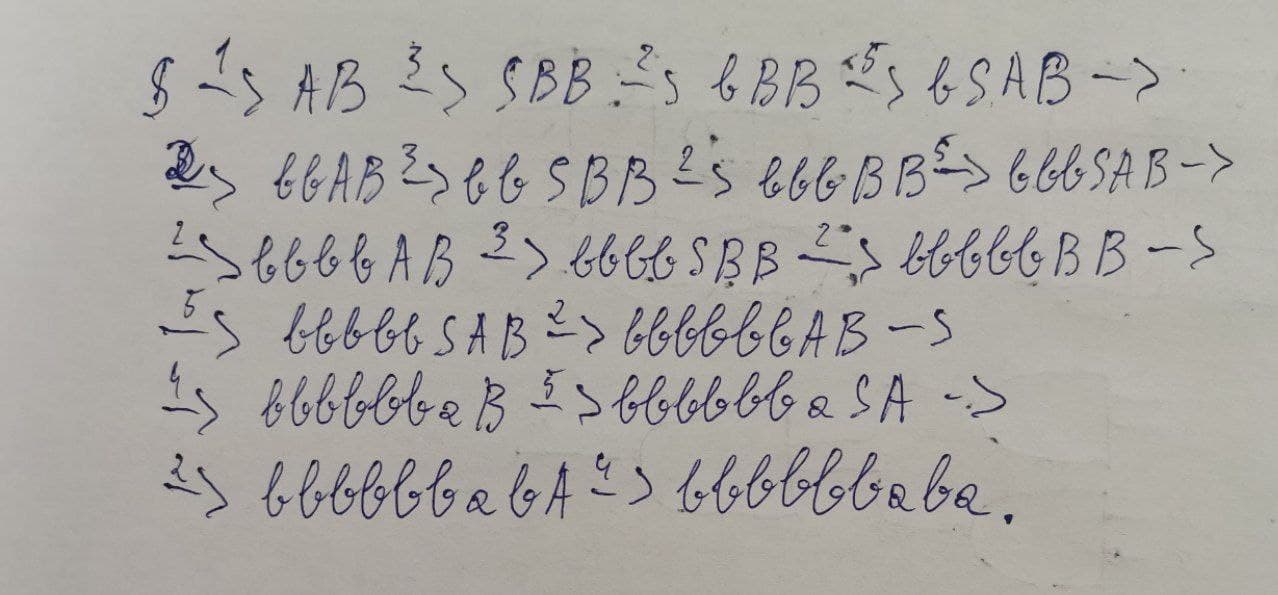 S 1→ AB 3→ SBB 2→ bBB 5→ bSAB →
2→ bbAB 3→ bbSBB 2→ bbbBB 5→ bbbSAB →
2→ bbbbAB 3→ bbbbSBB 2→ bbbbbBB →
5→ bbbbbSAB 2→ bbbbbbAB →
4→ bbbbbbaB 5→ bbbbbbaSA →
2→ bbbbbbabA 4→ bbbbbbaba.